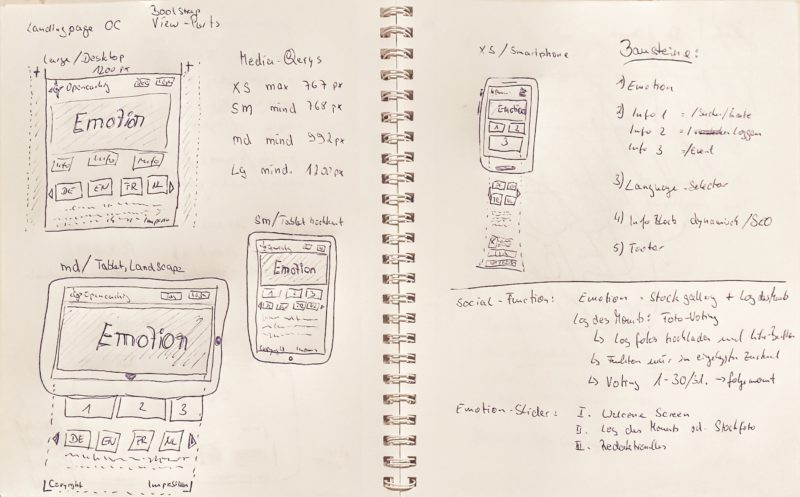 Landingpage OC
Bootstrap
View-Ports
Large/Desktop
1200px
Opencaching
Emotion
Info Info Info
DE EN FR NL
Media-Querys
XS max 767px
SM mind 768px
md mind 992px
Lg mind. 1200px
md/Tablet, Landscape
Opencaching
Emotion
1 2 3
DE EN FR NL
Copyright
SM/Tablet hochkant
Emotion
1 2 3
XS/Smartphone
Emotion
1 2
3
Bausteine:
1) Emotion
2) Info 1 = /Suche/Karte
Info 2 = / Loggen
Info 3 = /Event
3) Language-Selector
4) InfoBlock dynamisch/SEO
5) Footer
Social-Function: Emotion - Stockgallery + Log des Monats
Log des Monats: Foto-Voting
↳ Log fotos hochladen und Like-Button
↳ Funktion nur im eingeloggten Zustand
↳ Voting 1-30/31. → folgemonat
Emotion-Slider: I. Welcome Screen
II. Log des Monats od. Stockfoto
III. Redaktionelles